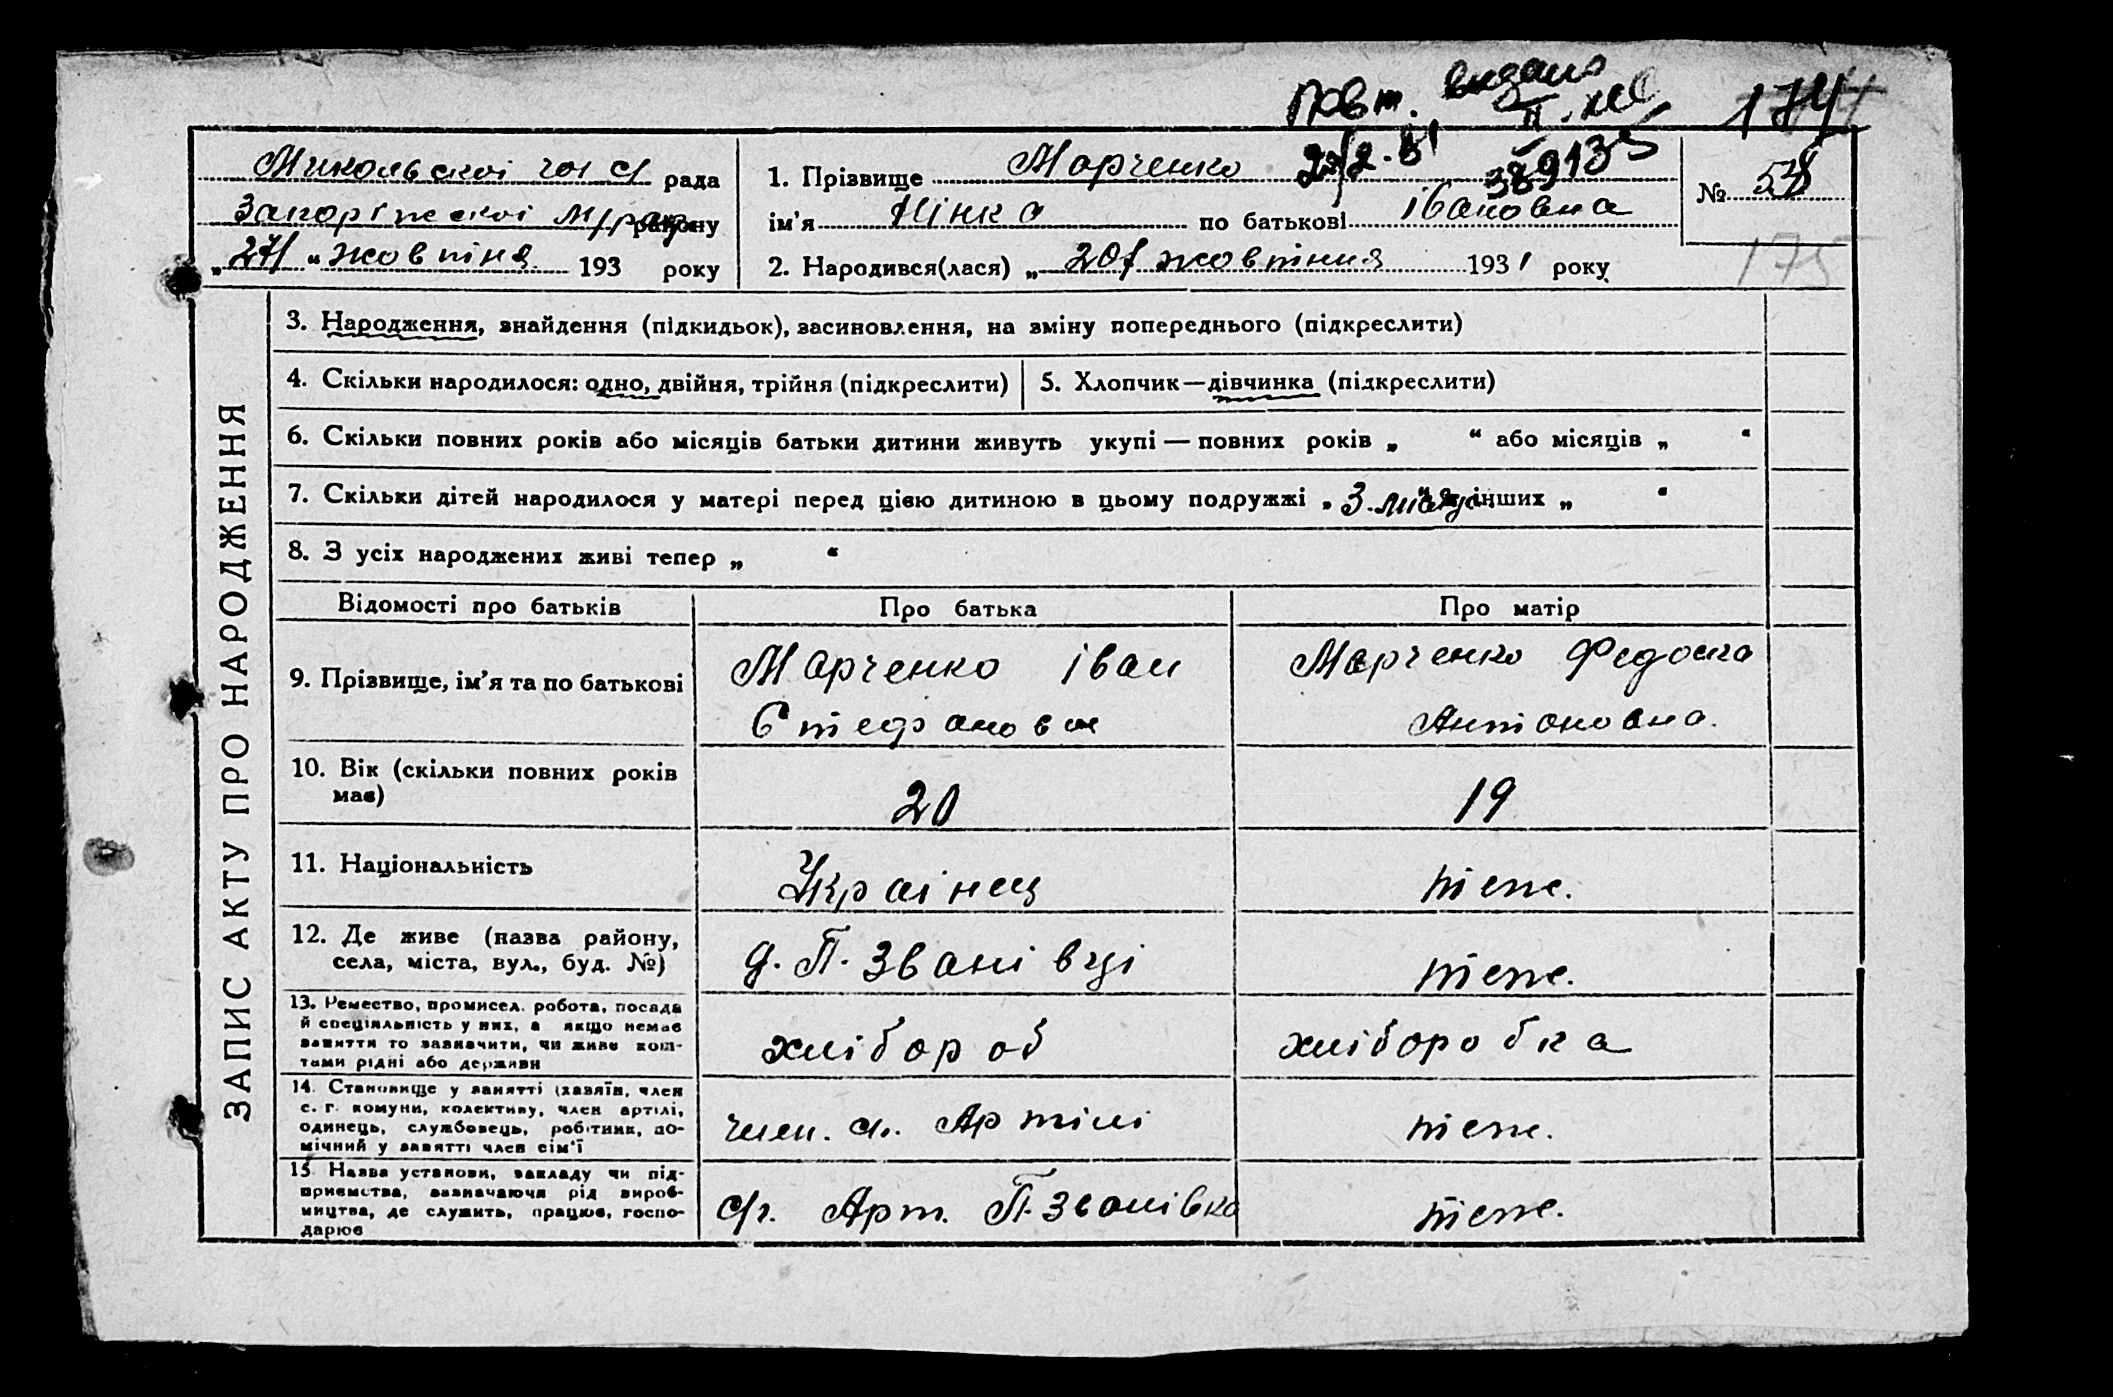 повт. видано 174
Микольської рада
1. Прізвище Марченко
№ 58
Запорізської району
ім'я Нінка по батькові Івановна
„27“ жовтня 193 року
2. Народився(лася) „20“ жовтня 1931 року
175
ЗАПИС АКТУ ПРО НАРОДЖЕННЯ
3. Народження, знайдення (підкидьок), засиновлення, на зміну попереднього (підкреслити)
4. Скільки народилося: одно, двійня, трійня (підкреслити)
5. Хлопчик—дівчинка (підкреслити)
6. Скільки повних років або місяців батьки дитини живуть укупі — повних років „ “ або місяців „ “
7. Скільки дітей народилося у матері перед цією дитиною в цьому подружжі „ 3 інших „ “
8. З усіх народжених живі тепер „ “
Відомості про батьків Про батька Про матір
9. Прізвище, ім'я та по батькові
Марченко Іван
Стефанович
Марченко Федоска
Антоновна.
10. Вік (скільки повних років має)
20
19
11. Національність
Украінец
теж.
12. Де живе (назва району, села, міста, вул., буд. №)
д. П. Званівці
теж.
13. Ремество, промисел. робота, посада
й спеціяльність у них, а якщо немає
заняття то зазначити, чи живе кош-
тами рідні або держави
хлібороб
хліборобка
14. Становище у занятті (хазяїн, член
с. г. комуни, колективу, член артілі,
одинець, службовець, робітник, по-
мічний у занятті член сім'ї
член. с/г. Артілі
теж.
15. Назва установи, закладу чи під-
приємства, зазначаючи рід вироб-
ництва, де служить, працює, госпо-
дарює
с/г. Арт. П. Званівка
теж.